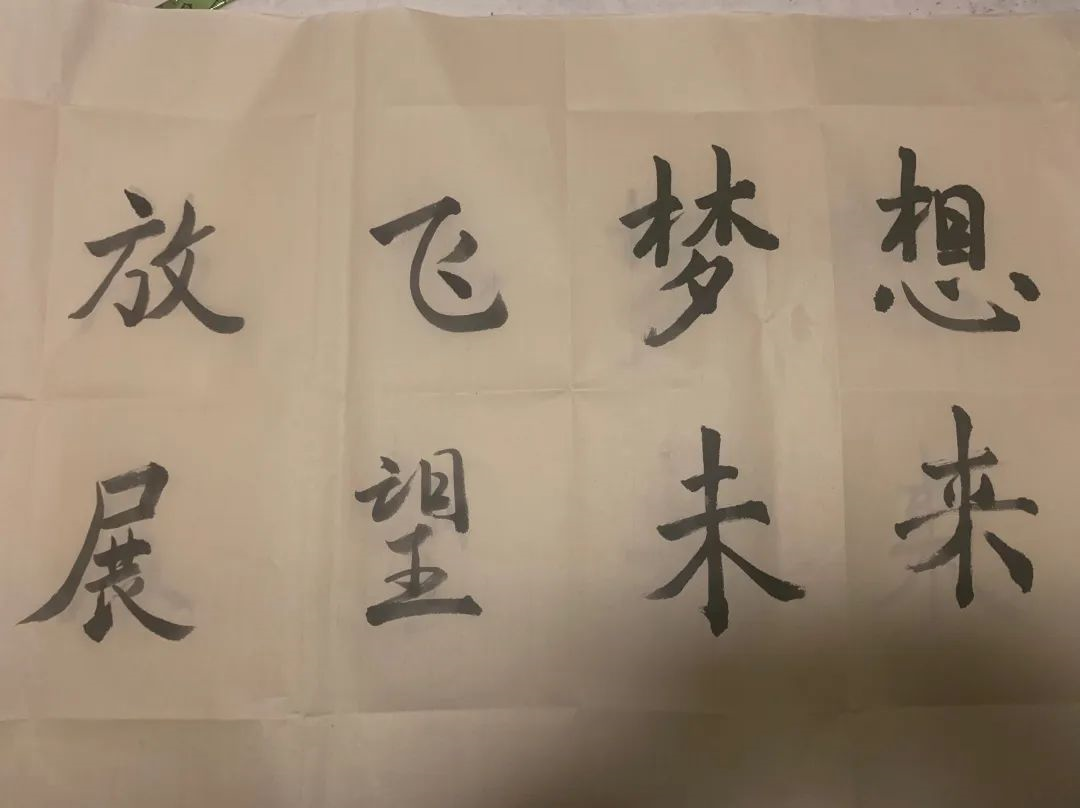 放飞梦想
展望未来